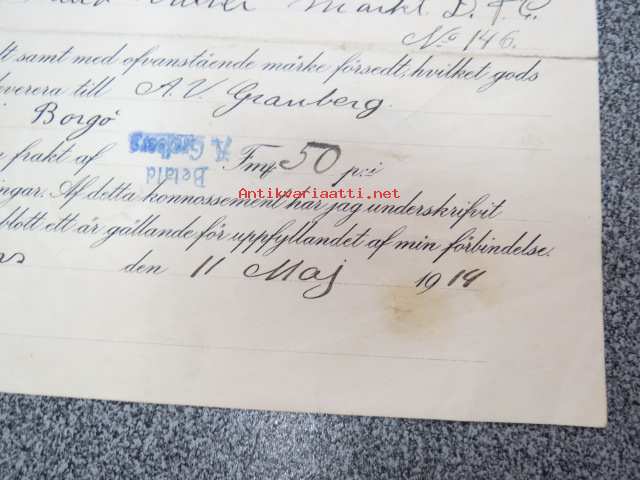 Märkt D. F. G.
No 146.
samt med ofvanstående märke försedt, hvilket gods
everera till A. V. Granberg.
i Borgö
e frakt af Fmf 50 p:i
Betald
Antikvariaatti.net
ingar. Af detta konnossement har jag underskrifvit
blott ett är gällande för uppfyllandet af min förbindelse.
den 11 Maj 1914